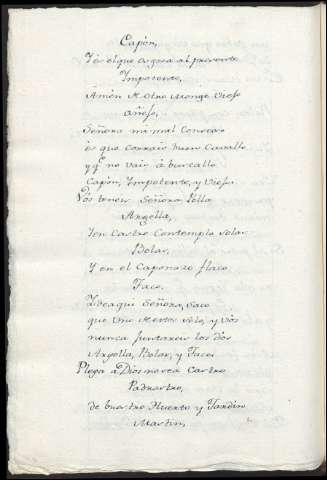 Capón,
Yes el que agora al presente
Impotente,
Amén A otro Monge Viejo
Añejo,
Señora mi mal Consejo
és que Corraís buen Cavallo
y qe no vaís á buscallo
Capón, Impotente, y Viejo.
Vós tener Señora Pella
Argolla,
Yen Castro Contemplo volar
Bolar,
Y en el Caponazo flaco
Taco.
Ydeaqui Señora, Saco
que Uno Metes solo, y Vós
nunca Juntareis los dós
Argolla, Bolar, y Taco.
Plega á Dios nazca Castro
Padrastro,
de buestro Huerto y Jardin
Martin,